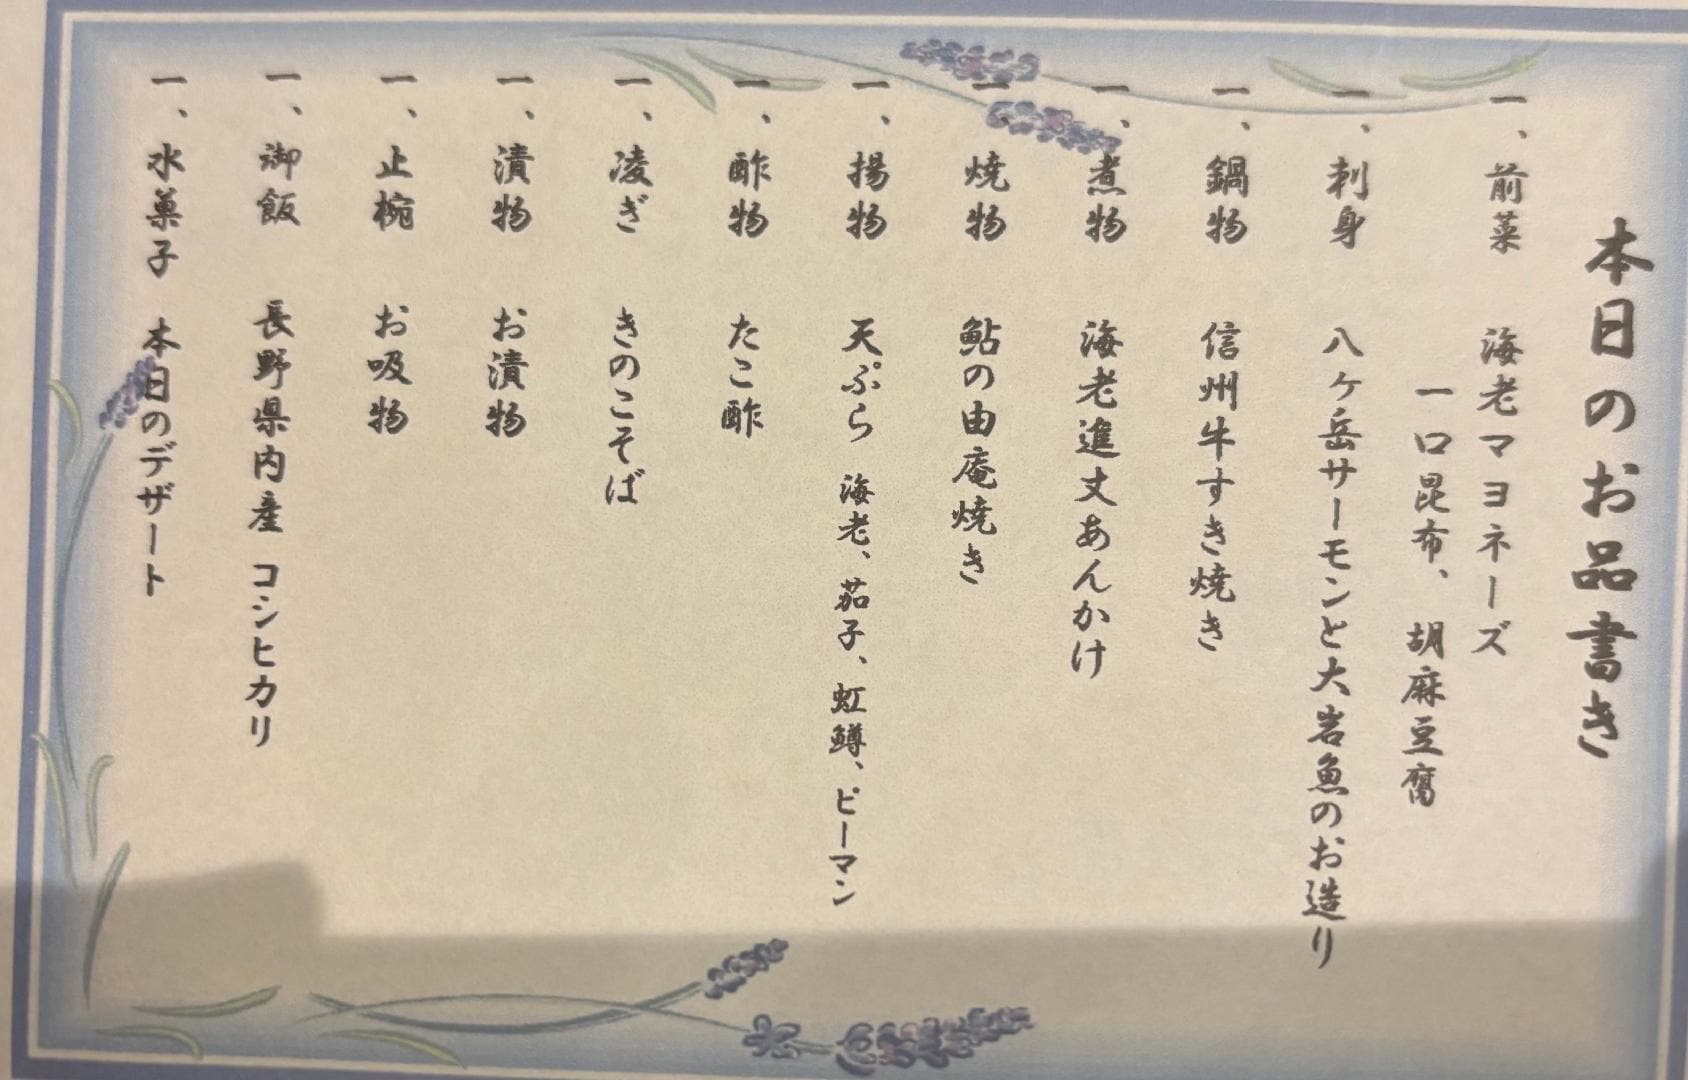 本日のお品書き
一、前菜 海老マヨネーズ
一口昆布、胡麻豆腐
一、刺身 八ヶ岳サーモンと大岩魚のお造り
一、鍋物 信州牛すき焼き
一、煮物 海老進丈あんかけ
一、焼物 鮎の由庵焼き
一、揚物 天ぷら 海老、茄子、虹鱒、ピーマン
一、酢物 たこ酢
一、凌ぎ きのこそば
一、漬物 お漬物
一、止椀 お吸物
一、御飯 長野県内産 コシヒカリ
一、水菓子 本日のデザート